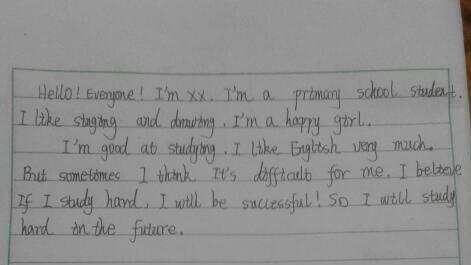 Hello! Everyone! I'm xx. I'm a primary school student.
I like singing and drawing. I'm a happy girl.
I'm good at studying. I like English very much.
But sometimes I think It's difficult for me. I believe
If I study hard, I will be successful! So I will study
hard in the future.